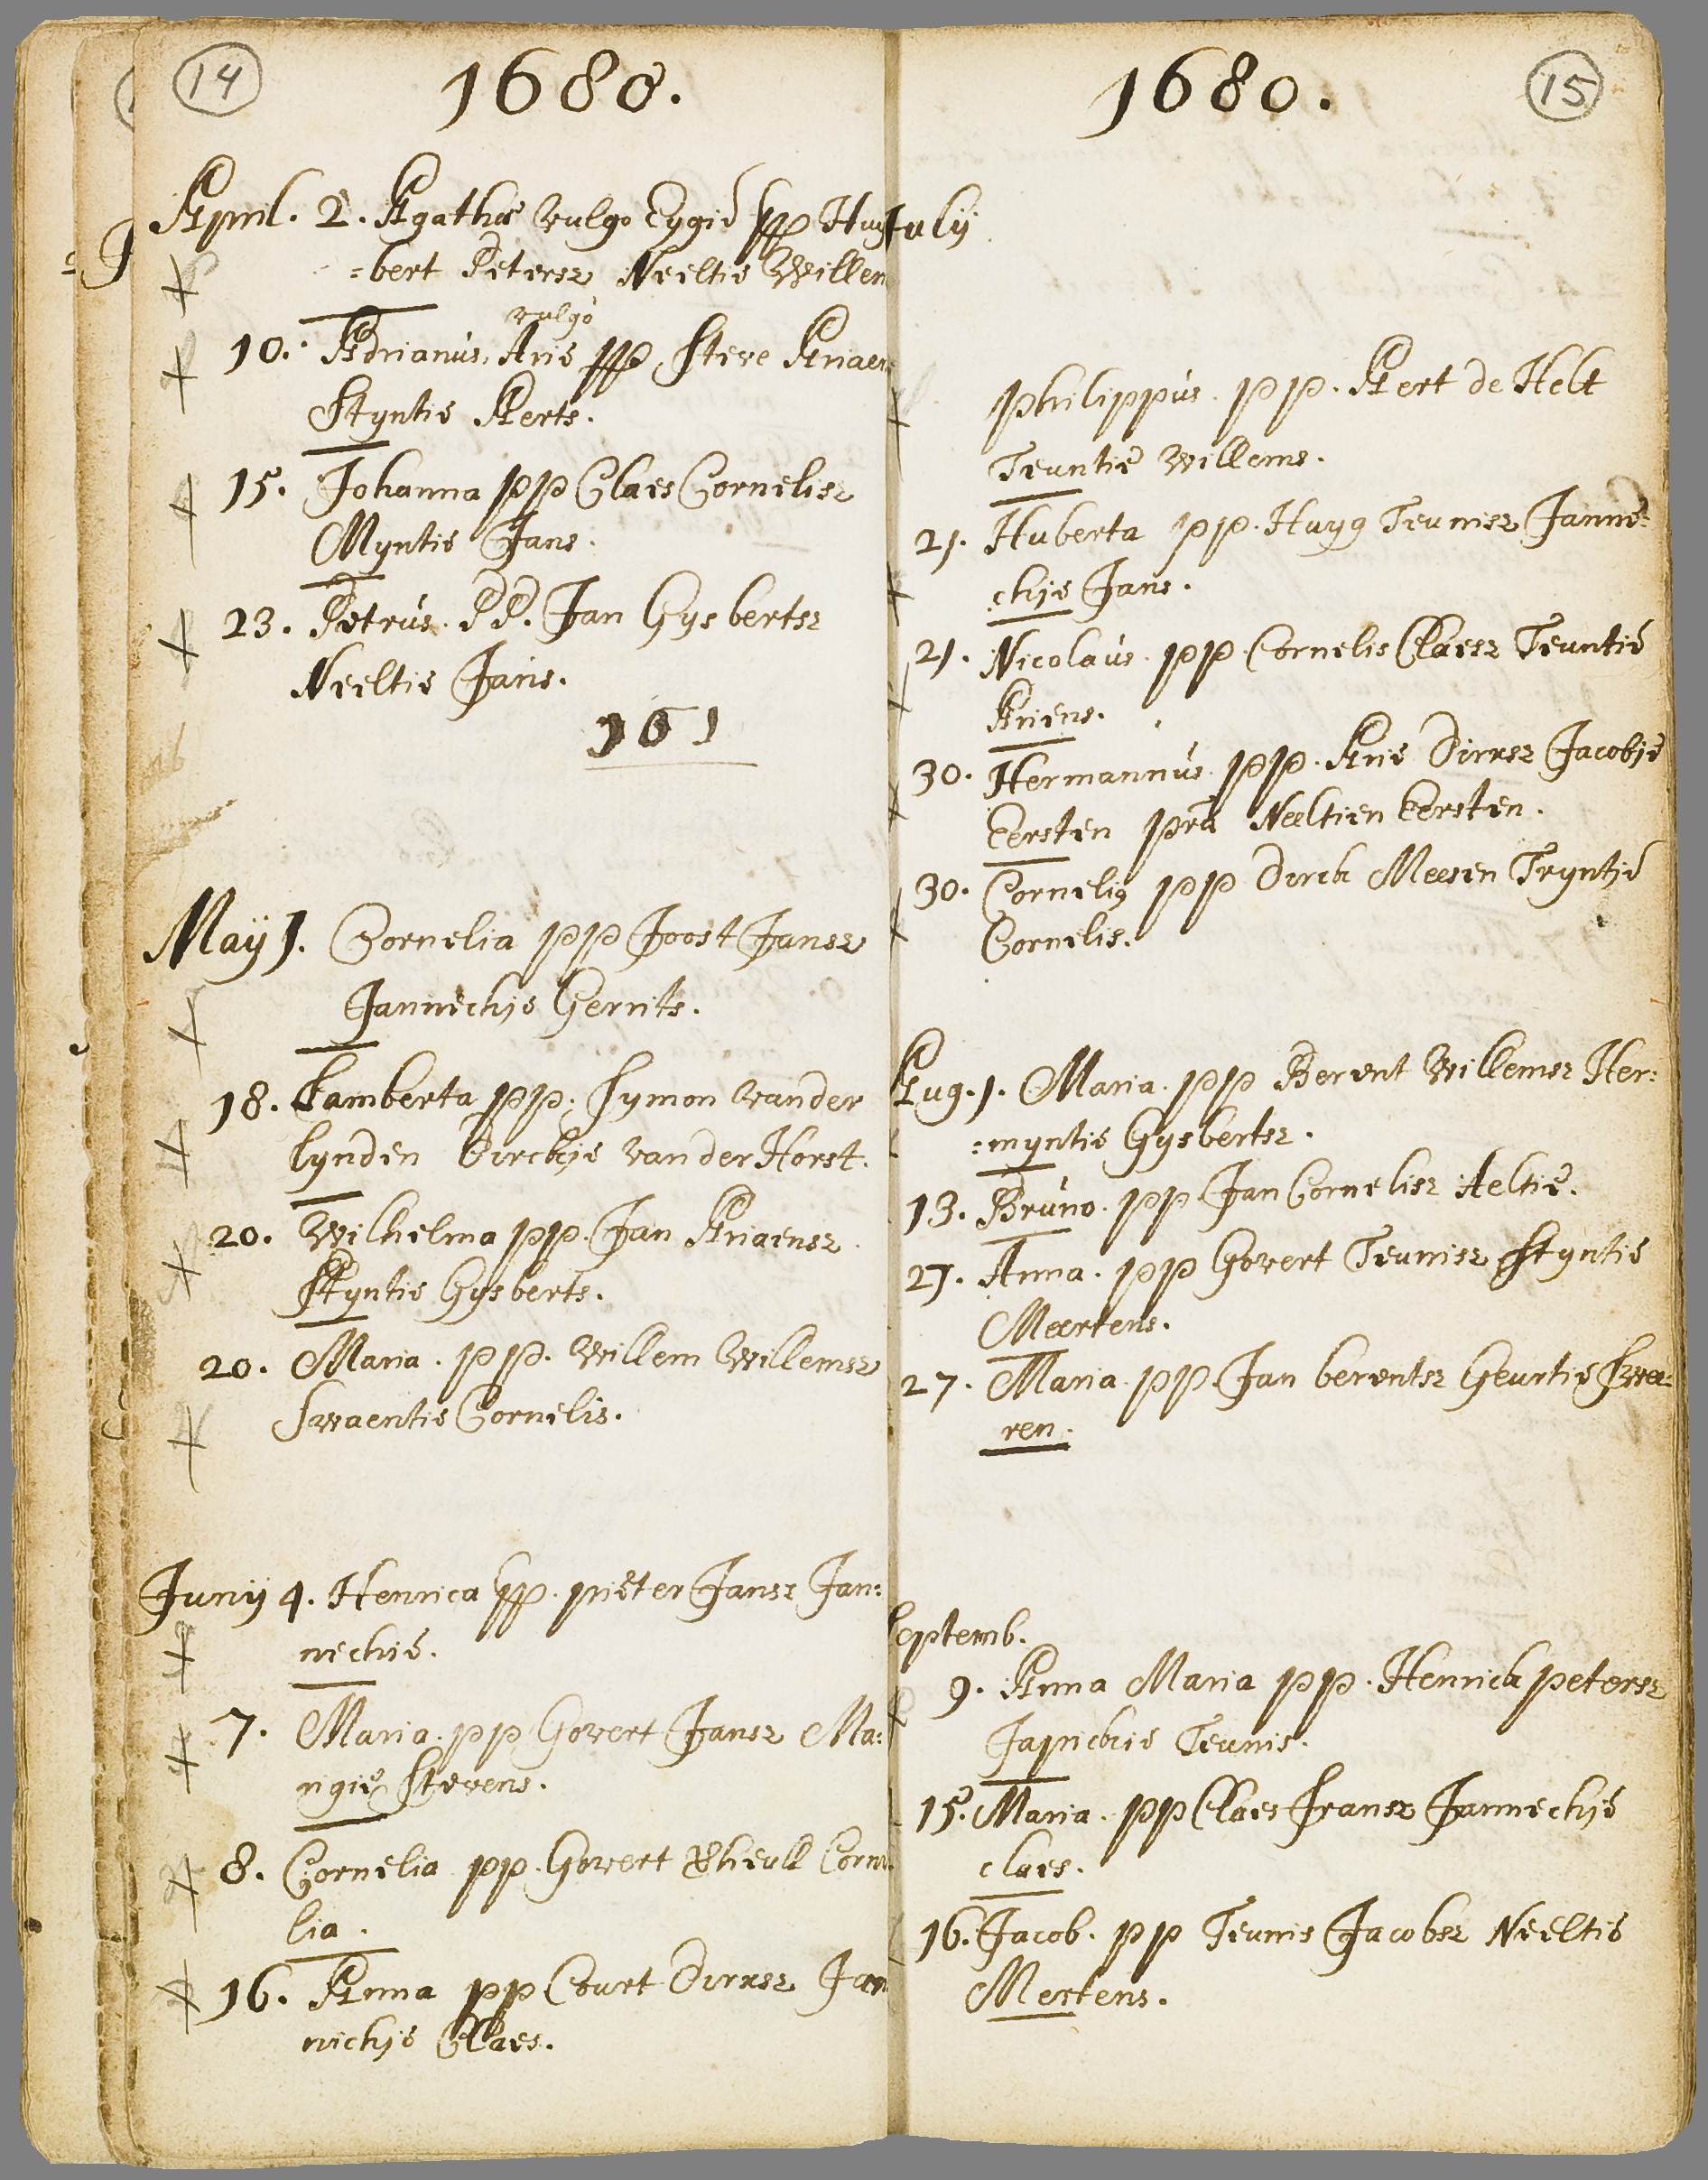 14
1680.
April. 2. Agatha vulgo Eygie pp Huy
=bert Petersz Neeltie Willem
vulgo
10. Adrianus, Arie pp, Steve Ariaen
Styntie Aerts.
15. Johanna pp Claes Cornelisz
Myntie Jans.
23. Petrus. PP. Jan Gysbertsz
Neeltie Jans.
161
May 1. Cornelia pp Joost Jansz
Jannechje Gerrits.
18. Lamberta pp. Symon vander
Lynden Dirckje van der Horst.
20. Wilhelma pp. Jan Ariaensz
Styntie Gysberts.
20. Maria. pp. Willem Willemsz
Swaentie Cornelis.
Junij 4. Henrica pp. pieter Jansz Jan=
nechie.
7. Maria. pp Govert Jansz Ma=
rigie Stevens.
8. Cornelia pp. Govert Corne
lia.
16. Anna pp Court Dirksz Jan
nichje Claes.
1680.
15
July
philippus. pp. Aert de Helt
Teuntie Willems.
21. Huberta pp. Huyg Teunisz Janne=
chje Jans.
21. Nicolaus. pp. Cornelis Claesz Teuntie
Ariens.
30. Hermannus. pp. Arie Dirksz Jacobje
Eersten pra Neeltien Eersten.
30. Cornelis pp Dirck Meesen Tryntje
Cornelis.
Aug. 1. Maria. pp Berent Willemsz Her=
=myntie Gysbertsz.
13. Bruno. pp Jan Cornelisz Aeltie.
27. Anna. pp Govert Teunisz Styntie
Maertens.
27. Maria. pp. Jan berentsz Geurtie
ren.
Septemb.
9. Anna Maria pp. Henrick petersz
Japickie Teunis.
15. Maria. pp Claes Fransz Jannechje
claes.
16. Jacob. pp Teunis Jacobsz Neeltie
Mertens.